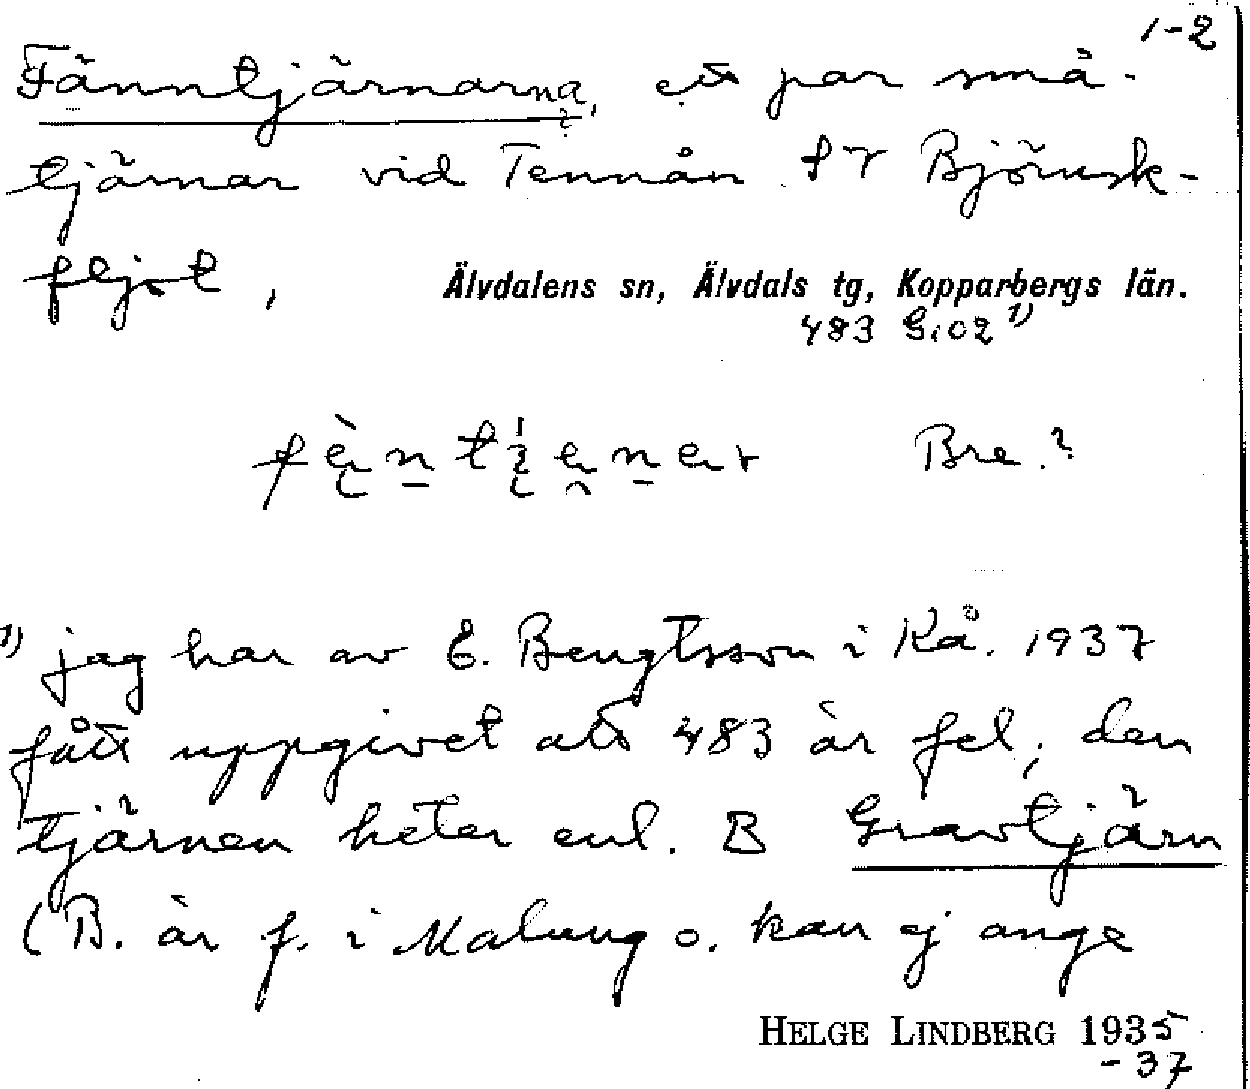 1-2
Fänntjärnarna, ett par små-
tjärnar vid Tennån SV Björnsk-
fljot,
Älvdalens sn, Älvdals tg, Kopparbergs län.
483 G:02 1)
Bre.?
1) jag har av E. Bengtsson i Kå. 1937
fått uppgivet att 483 är fel; den
tjärnen heter enl. B Gravtjärn
(B. är f. i Malung o. kan ej ange
HELGE LINDBERG 1935
-37